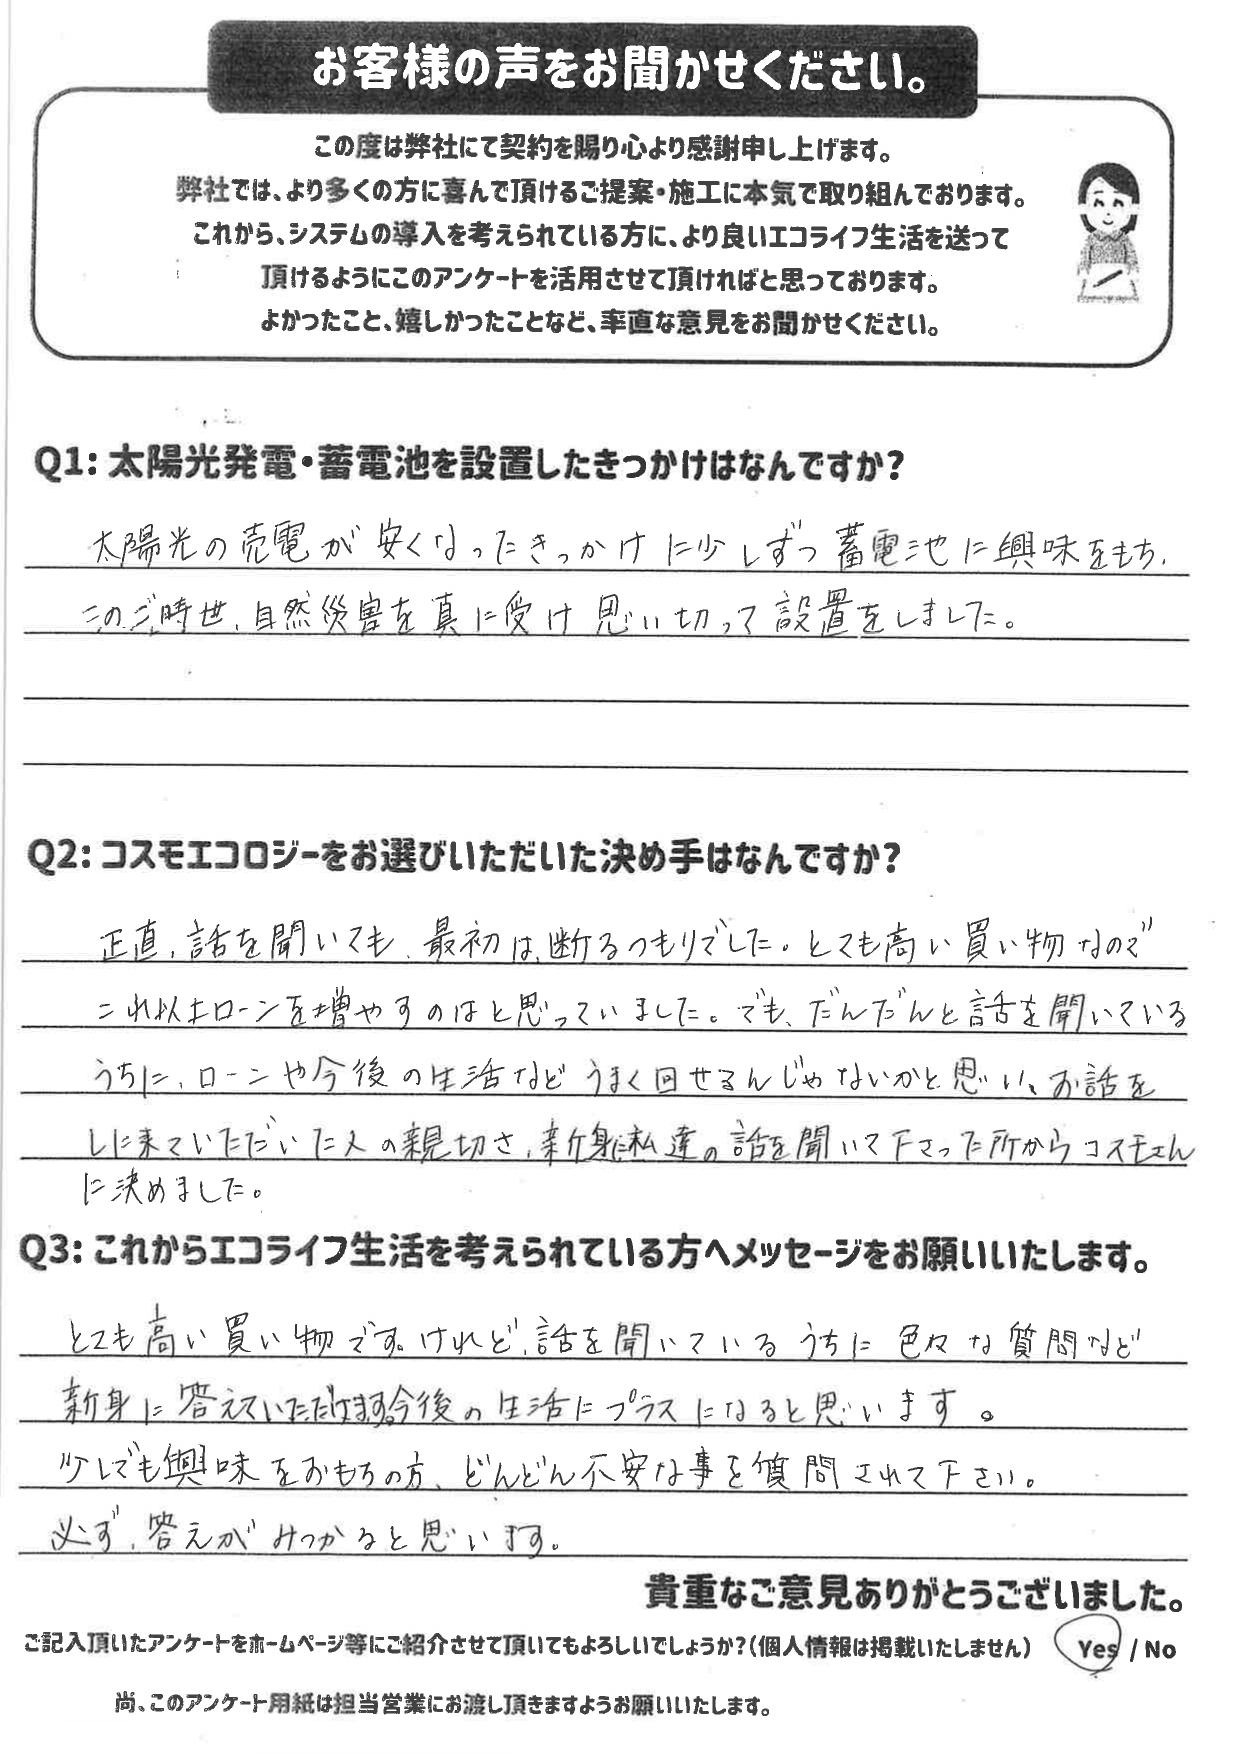 お客様の声をお聞かせください。
この度は弊社にて契約を賜り心より感謝申し上げます。
弊社では、より多くの方に喜んで頂けるご提案・施工に本気で取り組んでおります。
これから、システムの導入を考えられている方に、より良いエコライフ生活を送って
頂けるようにこのアンケートを活用させて頂ければと思っております。
よかったこと、嬉しかったことなど、率直な意見をお聞かせください。
Q1: 太陽光発電・蓄電池を設置したきっかけはなんですか?
太陽光の売電が安くなったきっかけに少しずつ蓄電池に興味をもち、
このご時世、自然災害を真に受け思い切って設置をしました。
Q2: コスモエコロジーをお選びいただいた決め手はなんですか?
正直、話を聞いても、最初は、断るつもりでした。とても高い買い物なので
これ以上ローンを増やすのはと思っていました。でも、だんだんと話を聞いている
うちに、ローンや今後の生活などうまく回せるんじゃないかと思い、お話を
しに来ていただいた人の親切さ、新身に私達の話を聞いて下さった所からコスモさん
に決めました。
Q3: これからエコライフ生活を考えられている方へメッセージをお願いいたします。
とても高い買い物です。けれど、話を聞いているうちに色々な質問など
新身に答えていただけます。今後の生活にプラスになると思います。
少しでも興味をおもちの方、どんどん不安な事を質問されて下さい。
必ず、答えがみつかると思います。
貴重なご意見ありがとうございました。
ご記入頂いたアンケートをホームページ等にご紹介させて頂いてもよろしいでしょうか?(個人情報は掲載いたしません) Yes / No
尚、このアンケート用紙は担当営業にお渡し頂きますようお願いいたします。